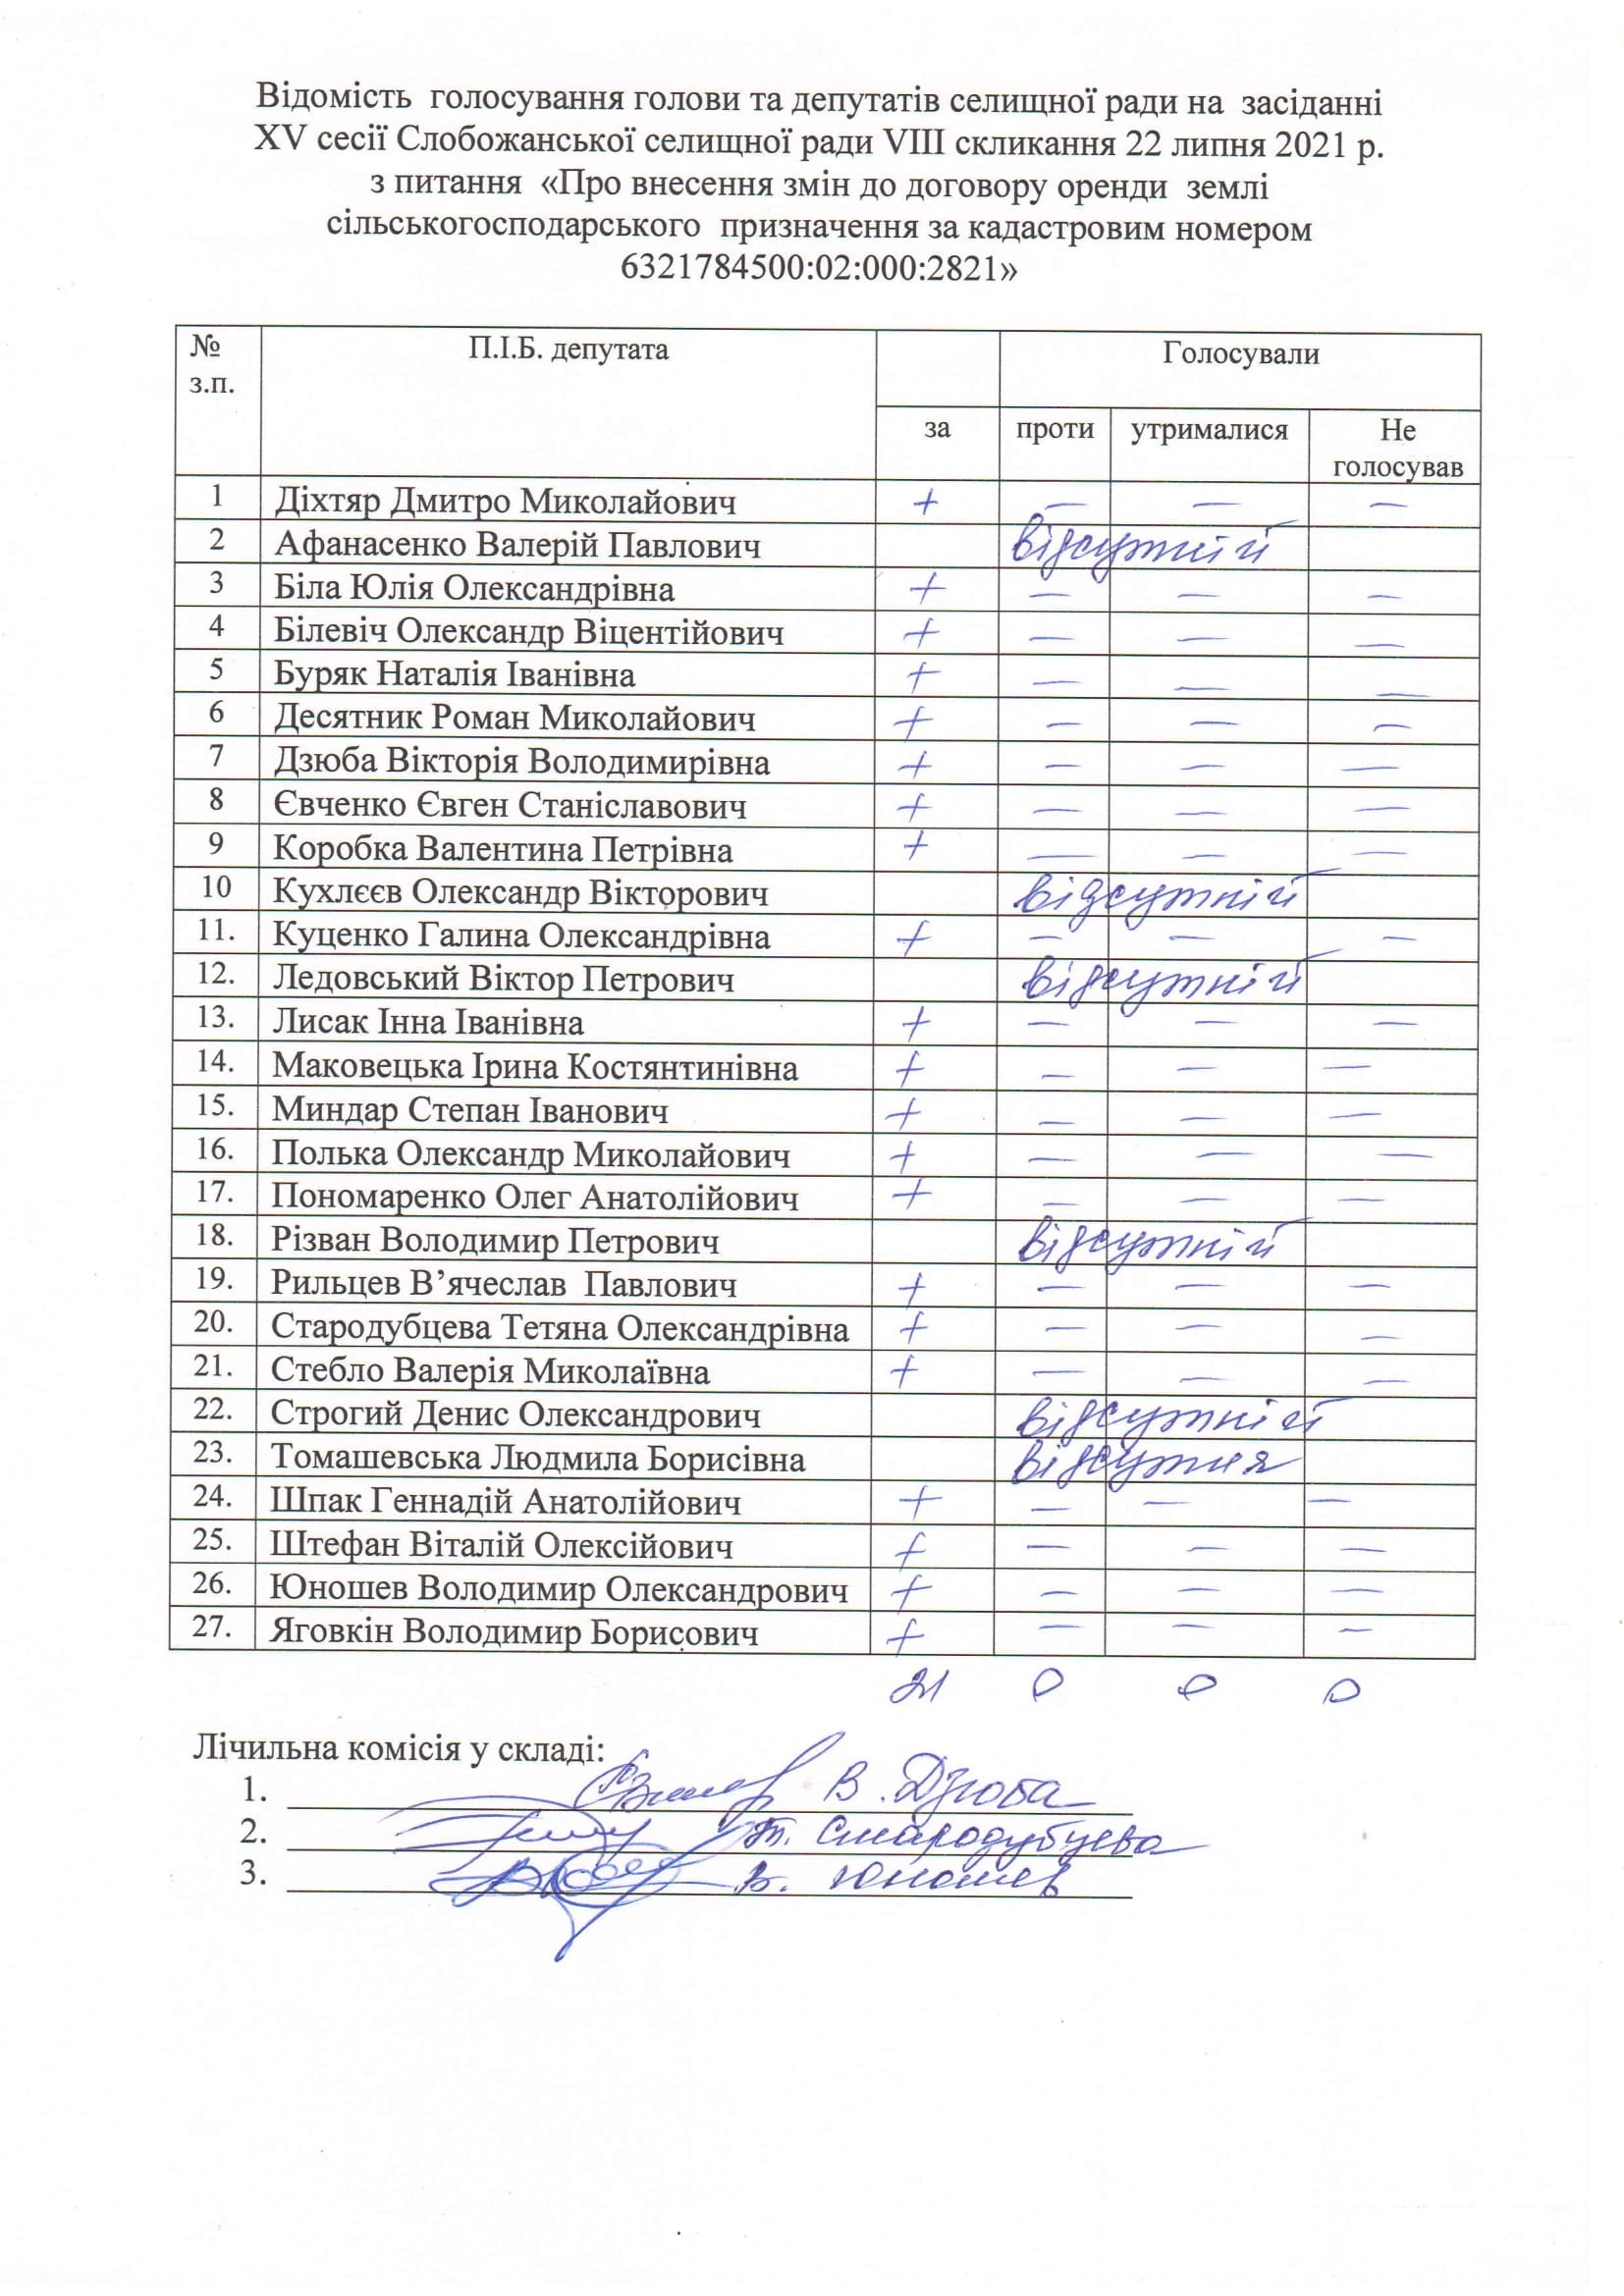 Відомість голосування голови та депутатів селищної ради на засіданні
XV сесії Слобожанської селищної ради VIII скликання 22 липня 2021 р.
з питання «Про внесення змін до договору оренди землі
сільськогосподарського призначення за кадастровим номером
6321784500:02:000:2821»
№ з.п. П.І.Б. депутата Голосували
за проти утрималися Не голосував
1 Діхтяр Дмитро Миколайович + — — —
2 Афанасенко Валерій Павлович відсутній
3 Біла Юлія Олександрівна + — — —
4 Білевіч Олександр Віцентійович + — — —
5 Буряк Наталія Іванівна + — — —
6 Десятник Роман Миколайович + — — —
7 Дзюба Вікторія Володимирівна + — — —
8 Євченко Євген Станіславович + — — —
9 Коробка Валентина Петрівна + — — —
10 Кухлєєв Олександр Вікторович відсутній
11. Куценко Галина Олександрівна + — — —
12. Ледовський Віктор Петрович відсутній
13. Лисак Інна Іванівна + — — —
14. Маковецька Ірина Костянтинівна + — — —
15. Миндар Степан Іванович + — — —
16. Полька Олександр Миколайович + — — —
17. Пономаренко Олег Анатолійович + — — —
18. Різван Володимир Петрович відсутній
19. Рильцев В’ячеслав Павлович + — — —
20. Стародубцева Тетяна Олександрівна + — — —
21. Стебло Валерія Миколаївна + — — —
22. Строгий Денис Олександрович відсутній
23. Томашевська Людмила Борисівна відсутня
24. Шпак Геннадій Анатолійович + — — —
25. Штефан Віталій Олексійович + — — —
26. Юношев Володимир Олександрович + — — —
27. Яговкін Володимир Борисович + — — —
21 0 0 0
Лічильна комісія у складі:
1. В. Дзюба
2. Т. Стародубцева
3. В. Юношев